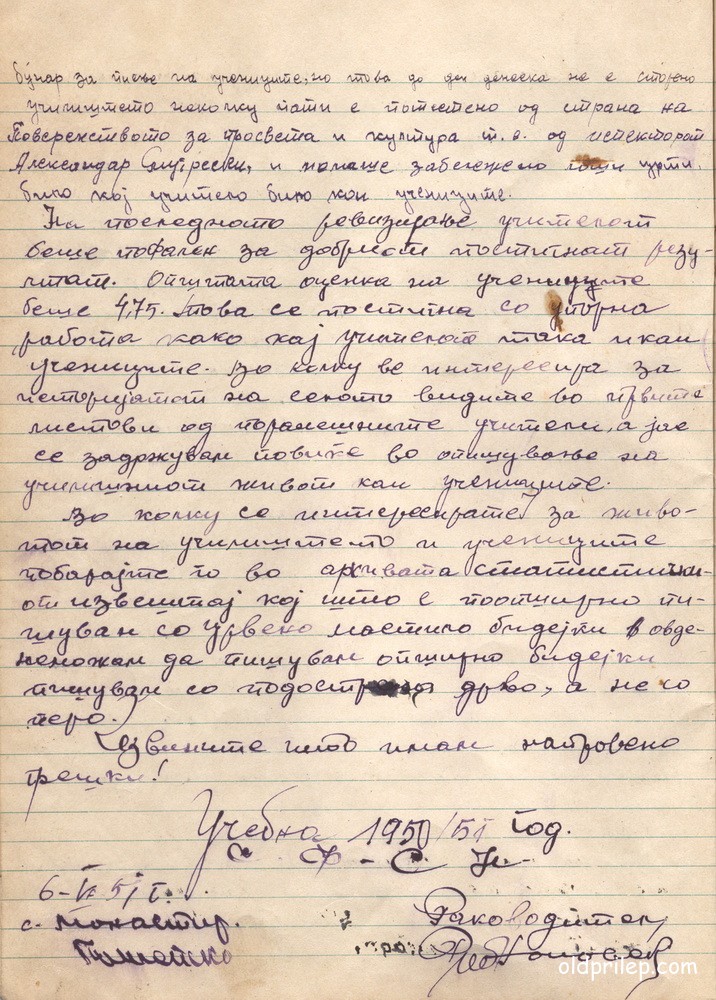 бунар за пиење на учениците, но това до ден денеска не е сторено
училиштето неколку пати е посетено од страна на
Повереништвото за просвета и култура т. е. од испекторот
Александар и немаше забележено
било кај учитело било кои учениците.
На последното ревизирање учителот
беше пофален за добриот постигнат резу-
лтат. Општата оценка на учениците
беше 4,75. това се постигна со упорна
работа како кај учителот така и кај
учениците. Во колку ве интересира за
историјатот на селото видите во првите
листови од поранешните учители, а јас
се задржувам повиќе во опишување на
училишниот живот кај учениците.
Во колку се интересирате за живо-
тот на училиштето и учениците
побарајте го во архивата статистички-
от извештај кој што е поопширно пи-
шуван со црвено мастило бидејќи овде-
неможам да пишувам опширно бидејќи
пишувам со подострено дрво, а не со
перо.
Извините што имам направено
грешки!
Учебна 1950/51 год.
С. Ф - С. Н.
6-VI 51 г.
с. Монастир.
Раководител,
oldprilep.com